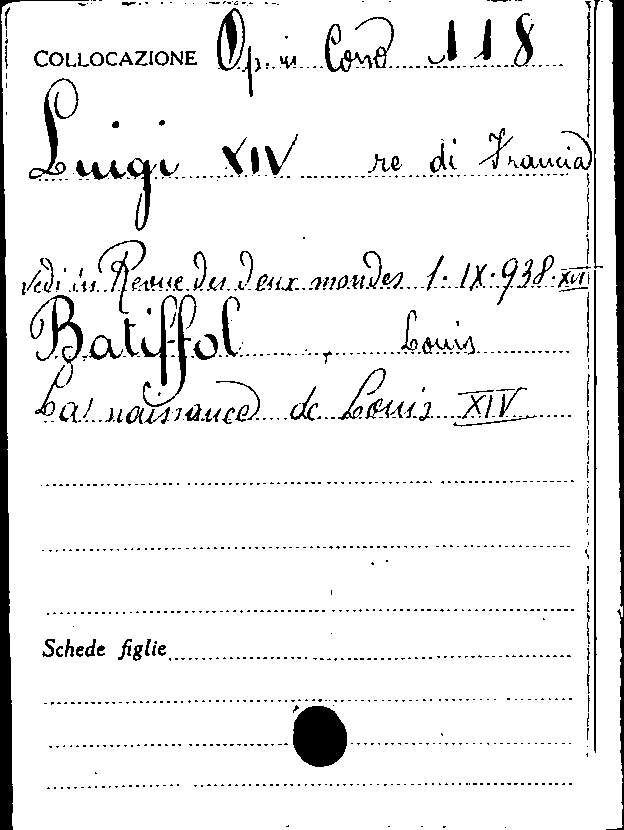 COLLOCAZIONE Op. in Cons 118
Luigi XIV re di Francia
vedi in Revue des deux mondes 1.IX.938.XVI
Batiffol, Louis
La naissance de Louis XIV
Schede figlie